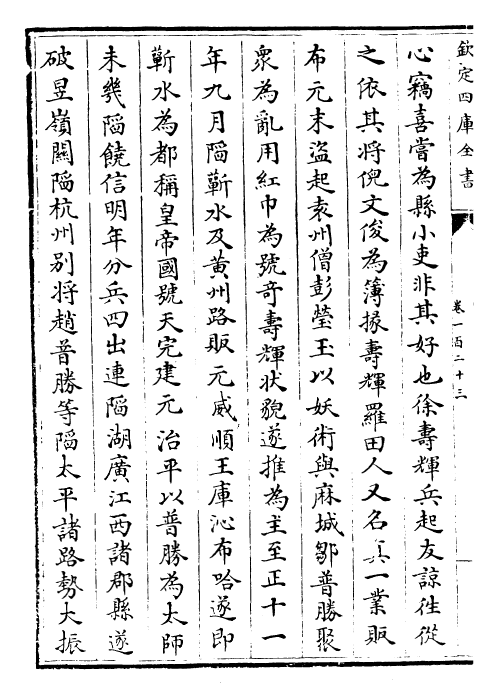 欽定四庫全書
卷一百二十三
心竊喜嘗為縣小吏非其好也徐壽輝兵起友諒往從
之依其將倪文俊為簿掾壽輝羅田人又名真一業販
布元末盜起袁州僧彭瑩玉以妖術與麻城鄒普勝聚
衆為亂用紅巾為號奇壽輝狀貌遂推為主至正十一
年九月陷蘄水及黃州路敗元威順王庫沁布哈遂即
蘄水為都稱皇帝國號天完建元治平以普勝為太師
未幾陷饒信明年分兵四出連陷湖廣江西諸郡縣遂
破昱嶺關陷杭州別將趙普勝等陷太平諸路勢大振